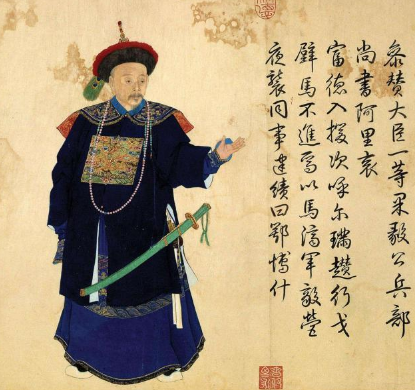 參赞大臣一等果毅公兵部
尚書阿里衮
富德入援次呼尔璊趱行戈
壁馬不進焉以馬濟軍毅營
夜襲同事建績曰鄂博什